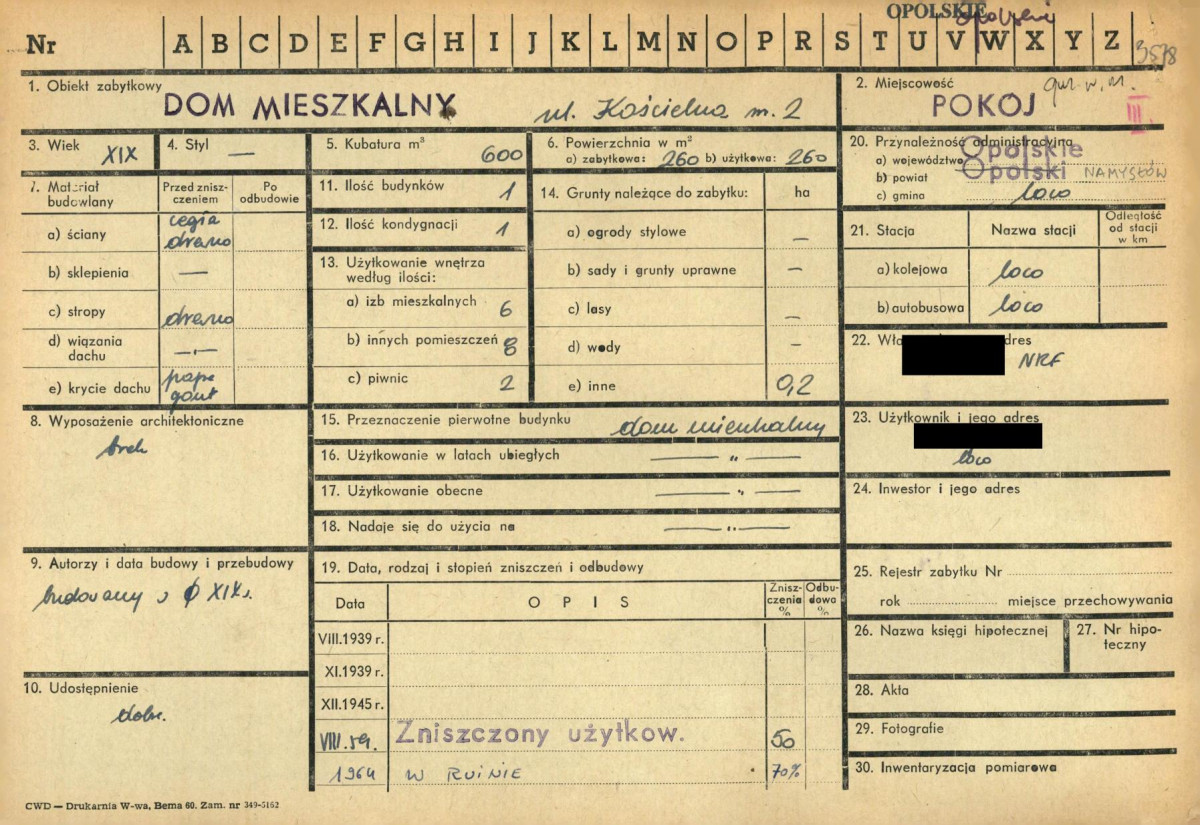 OPOLSKIE
Nr A B C D E F G H I J K L M N O P R S T U V W X Y Z 3578
1. Obiekt zabytkowy DOM MIESZKALNY ul. Kościelna m. 2
2. Miejscowość POKÓJ
III
3. Wiek XIX
4. Styl —
5. Kubatura m³ 600
6. Powierzchnia w m²
a) zabytkowa: 260 b) użytkowa: 260
20. Przynależność administracyjna
a) województwo Opolskie
b) powiat Opolski NAMYSŁÓW
c) gmina loco
7. Materiał budowlany
Przed zniszczeniem
Po odbudowie
a) ściany cegła drewno
b) sklepienia —
c) stropy drewno
d) wiązania dachu —„—
e) krycie dachu papa gont
11. Ilość budynków 1
12. Ilość kondygnacji 1
13. Użytkowanie wnętrza według ilości:
a) izb mieszkalnych 6
b) innych pomieszczeń 8
c) piwnic 2
14. Grunty należące do zabytku: ha
a) ogrody stylowe —
b) sady i grunty uprawne —
c) lasy —
d) wody —
e) inne 0,2
21. Stacja
Nazwa stacji
Odległość od stacji w km
a) kolejowa loco
b) autobusowa loco
22. Wła dres
NRF
23. Użytkownik i jego adres
loco
24. Inwestor i jego adres
8. Wyposażenie architektoniczne
brak
15. Przeznaczenie pierwotne budynku dom mieszkalny
16. Użytkowanie w latach ubiegłych — „ —
17. Użytkowanie obecne — „ —
18. Nadaje się do użycia na — „ —
9. Autorzy i data budowy i przebudowy
budowany w XIX w.
10. Udostępnienie
dobre.
19. Data, rodzaj i stopień zniszczeń i odbudowy
Data OPIS Zniszczenia % Odbudowa %
VIII.1939 r.
XI.1939 r.
XII.1945 r.
VIII.59. Zniszczony użytkow. 50
1964 W RUINIE 70%
25. Rejestr zabytku Nr
rok miejsce przechowywania
26. Nazwa księgi hipotecznej
27. Nr hipoteczny
28. Akta
29. Fotografie
30. Inwentaryzacja pomiarowa
CWD — Drukarnia W-wa, Bema 60. Zam. nr 349-5162